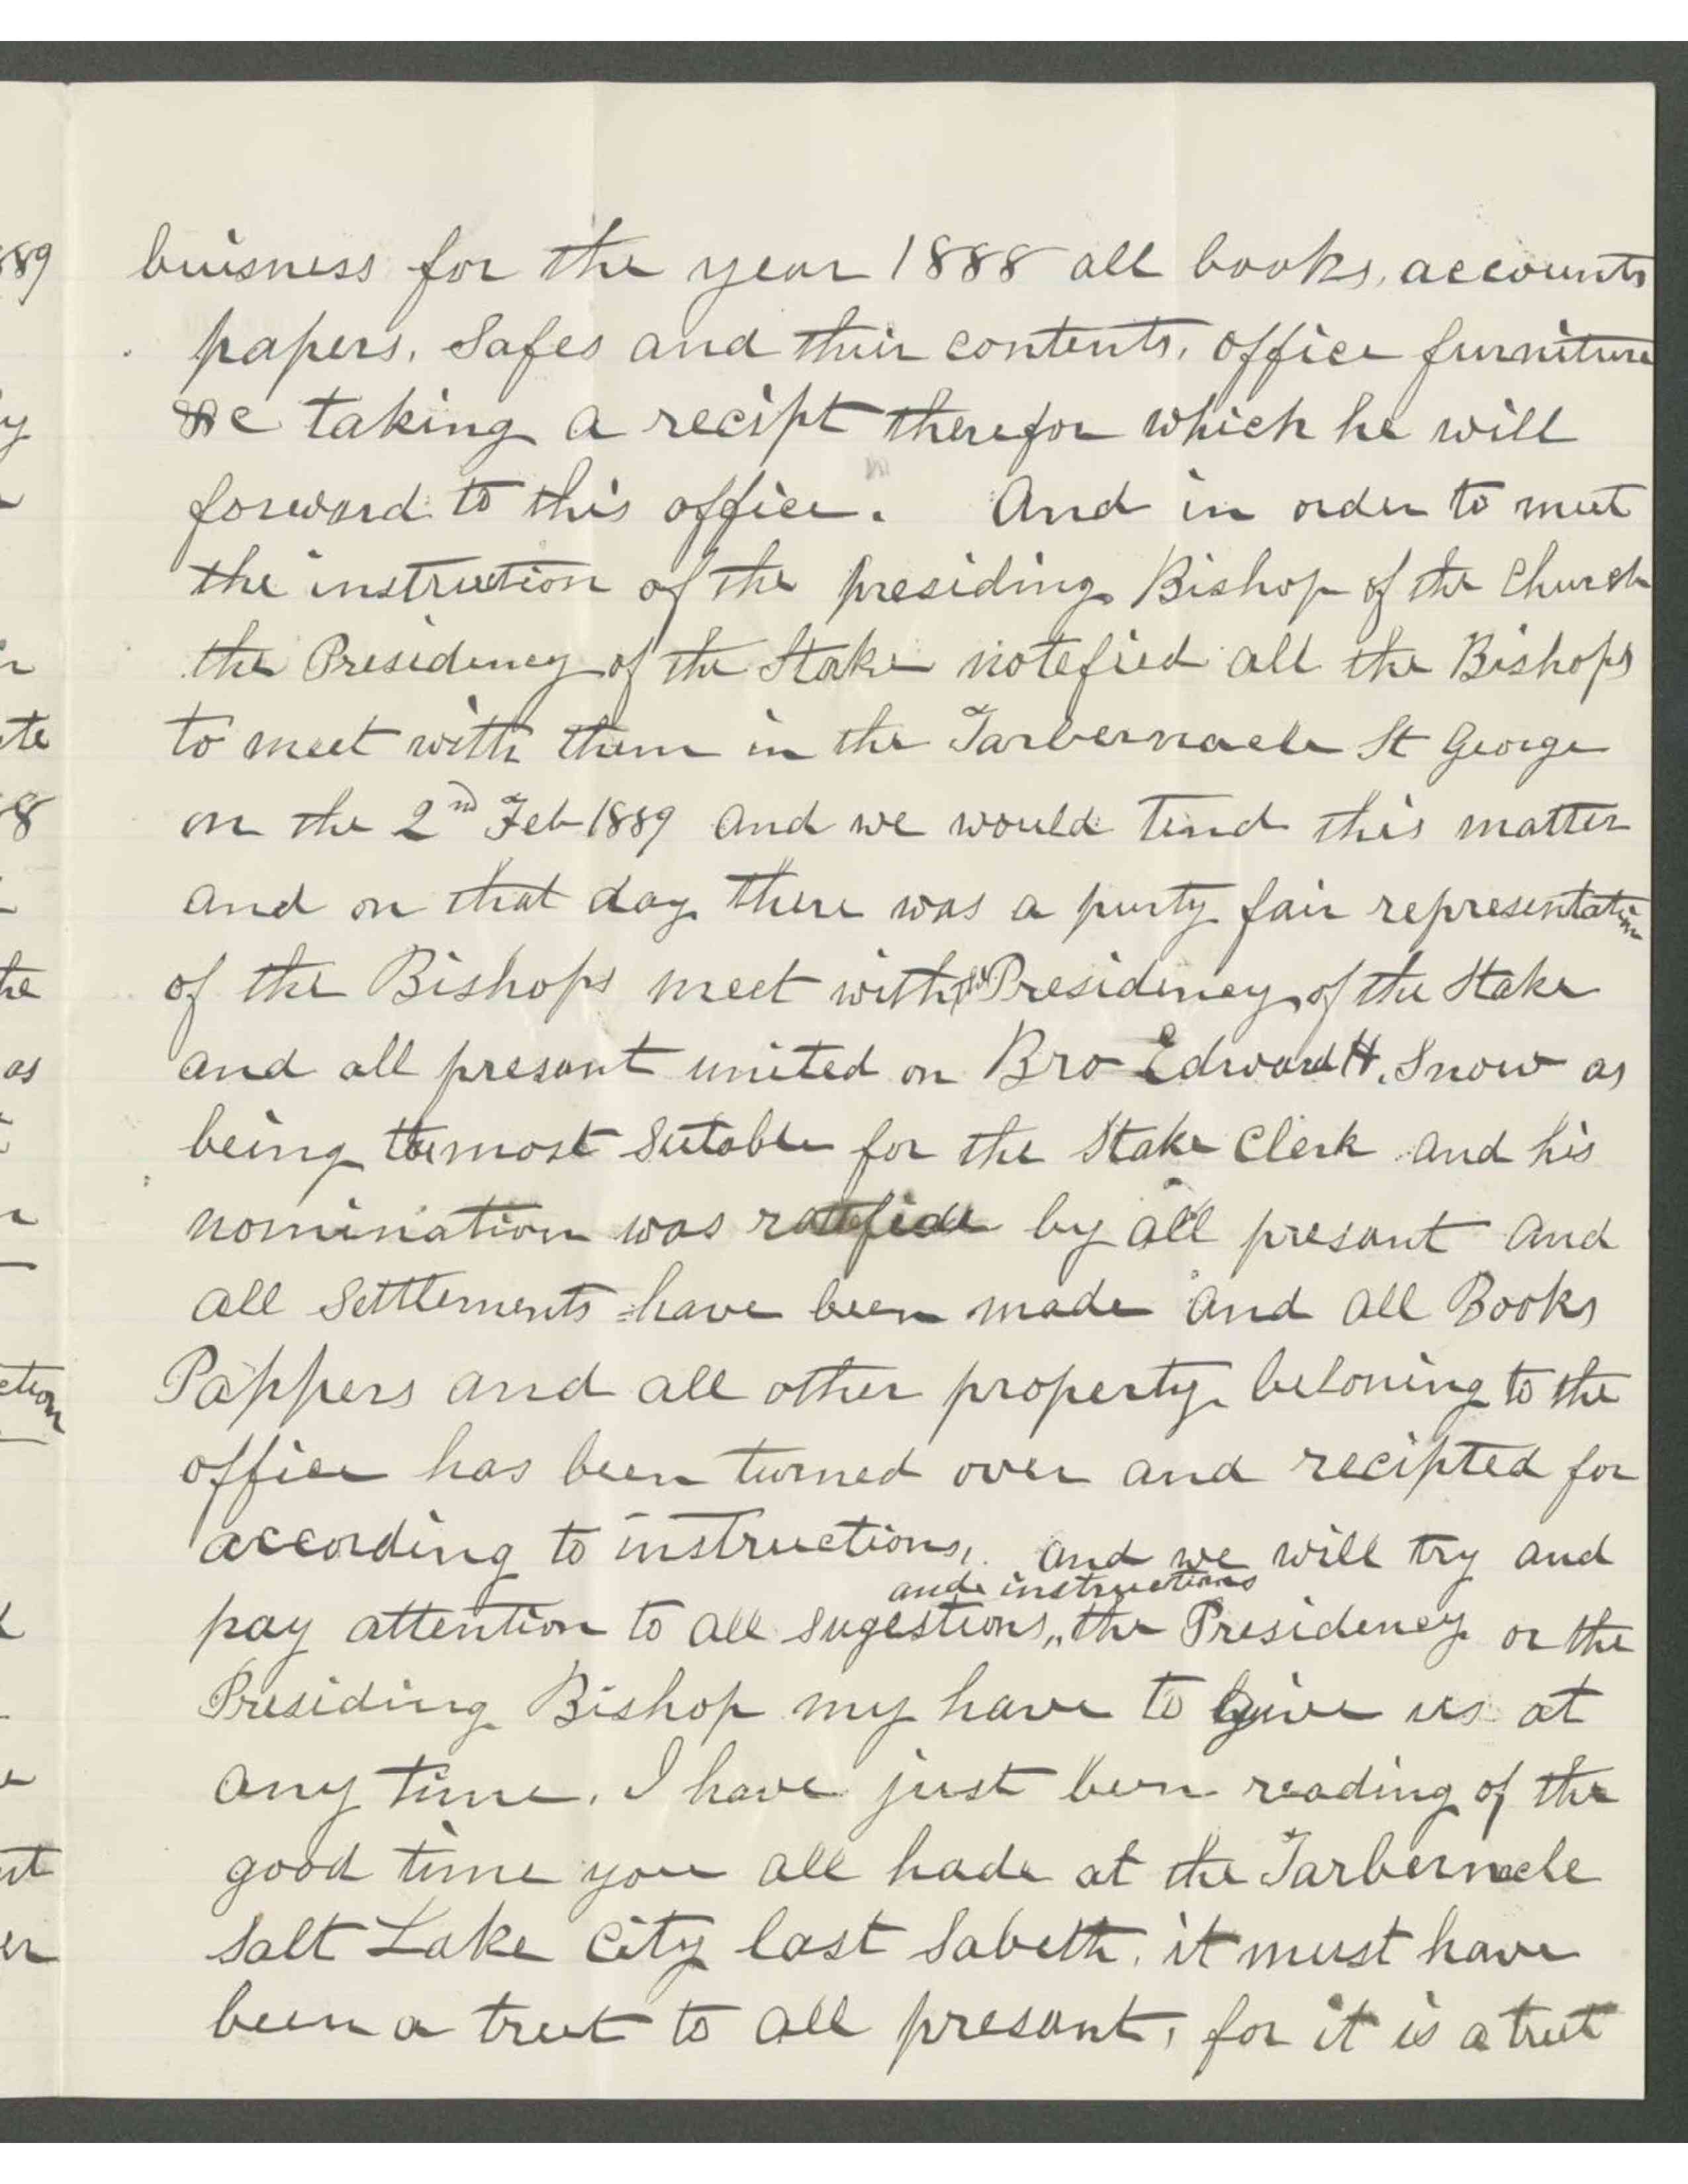 buisness for the year 1888 all books, accounts
papers, Safes and their contents, office furniture
&c taking a recipt therefor which he will
forward to this office. And in order to meet
the instruction of the presiding Bishop of the Church
the Presidency of the Stake notefied all the Bishops
to meet with them in the Tarbernacle St George
on the 2nd Feb 1889 and we would tend this matter
and on that day there was a purty fair representation
of the Bishops meet with the Presidency of the Stake
and all present united on Bro Edward H. Snow as
being the most sutable for the Stake Clerk and his
nomination was ratefide by all present and
all settlements have been made and all Books
Pappers and all other property beloning to the
office has been turned over and recipted for
according to instructions, and we will try and
and instructions
pay attention to all sugestions,, the Presidency or the
Presiding Bishop my have to give us at
any time. I have just been reading of the
good time you all hade at the Tarbernacle
Salt Lake City last Sabeth, it must have
been a treet to all present, for it is a treet